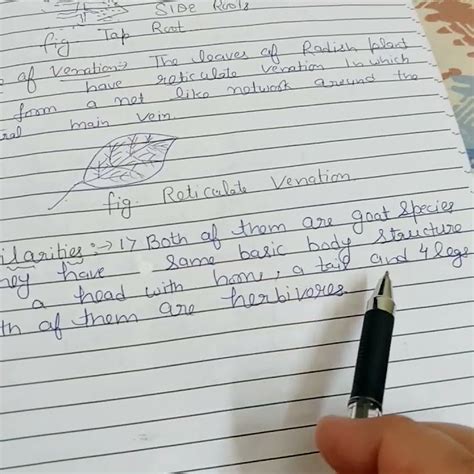 SIDE Roots
fig Tap Root
of Venation:→ The leaves of Radish plant
have reticulate venation in which
form a net like network around the
ral main vein.
fig. Reticulate Venation
ilarities:→ 1) Both of them are goat species
hey have same basic body structure
a head with horns, a tail and 4 legs
th of them are herbivores